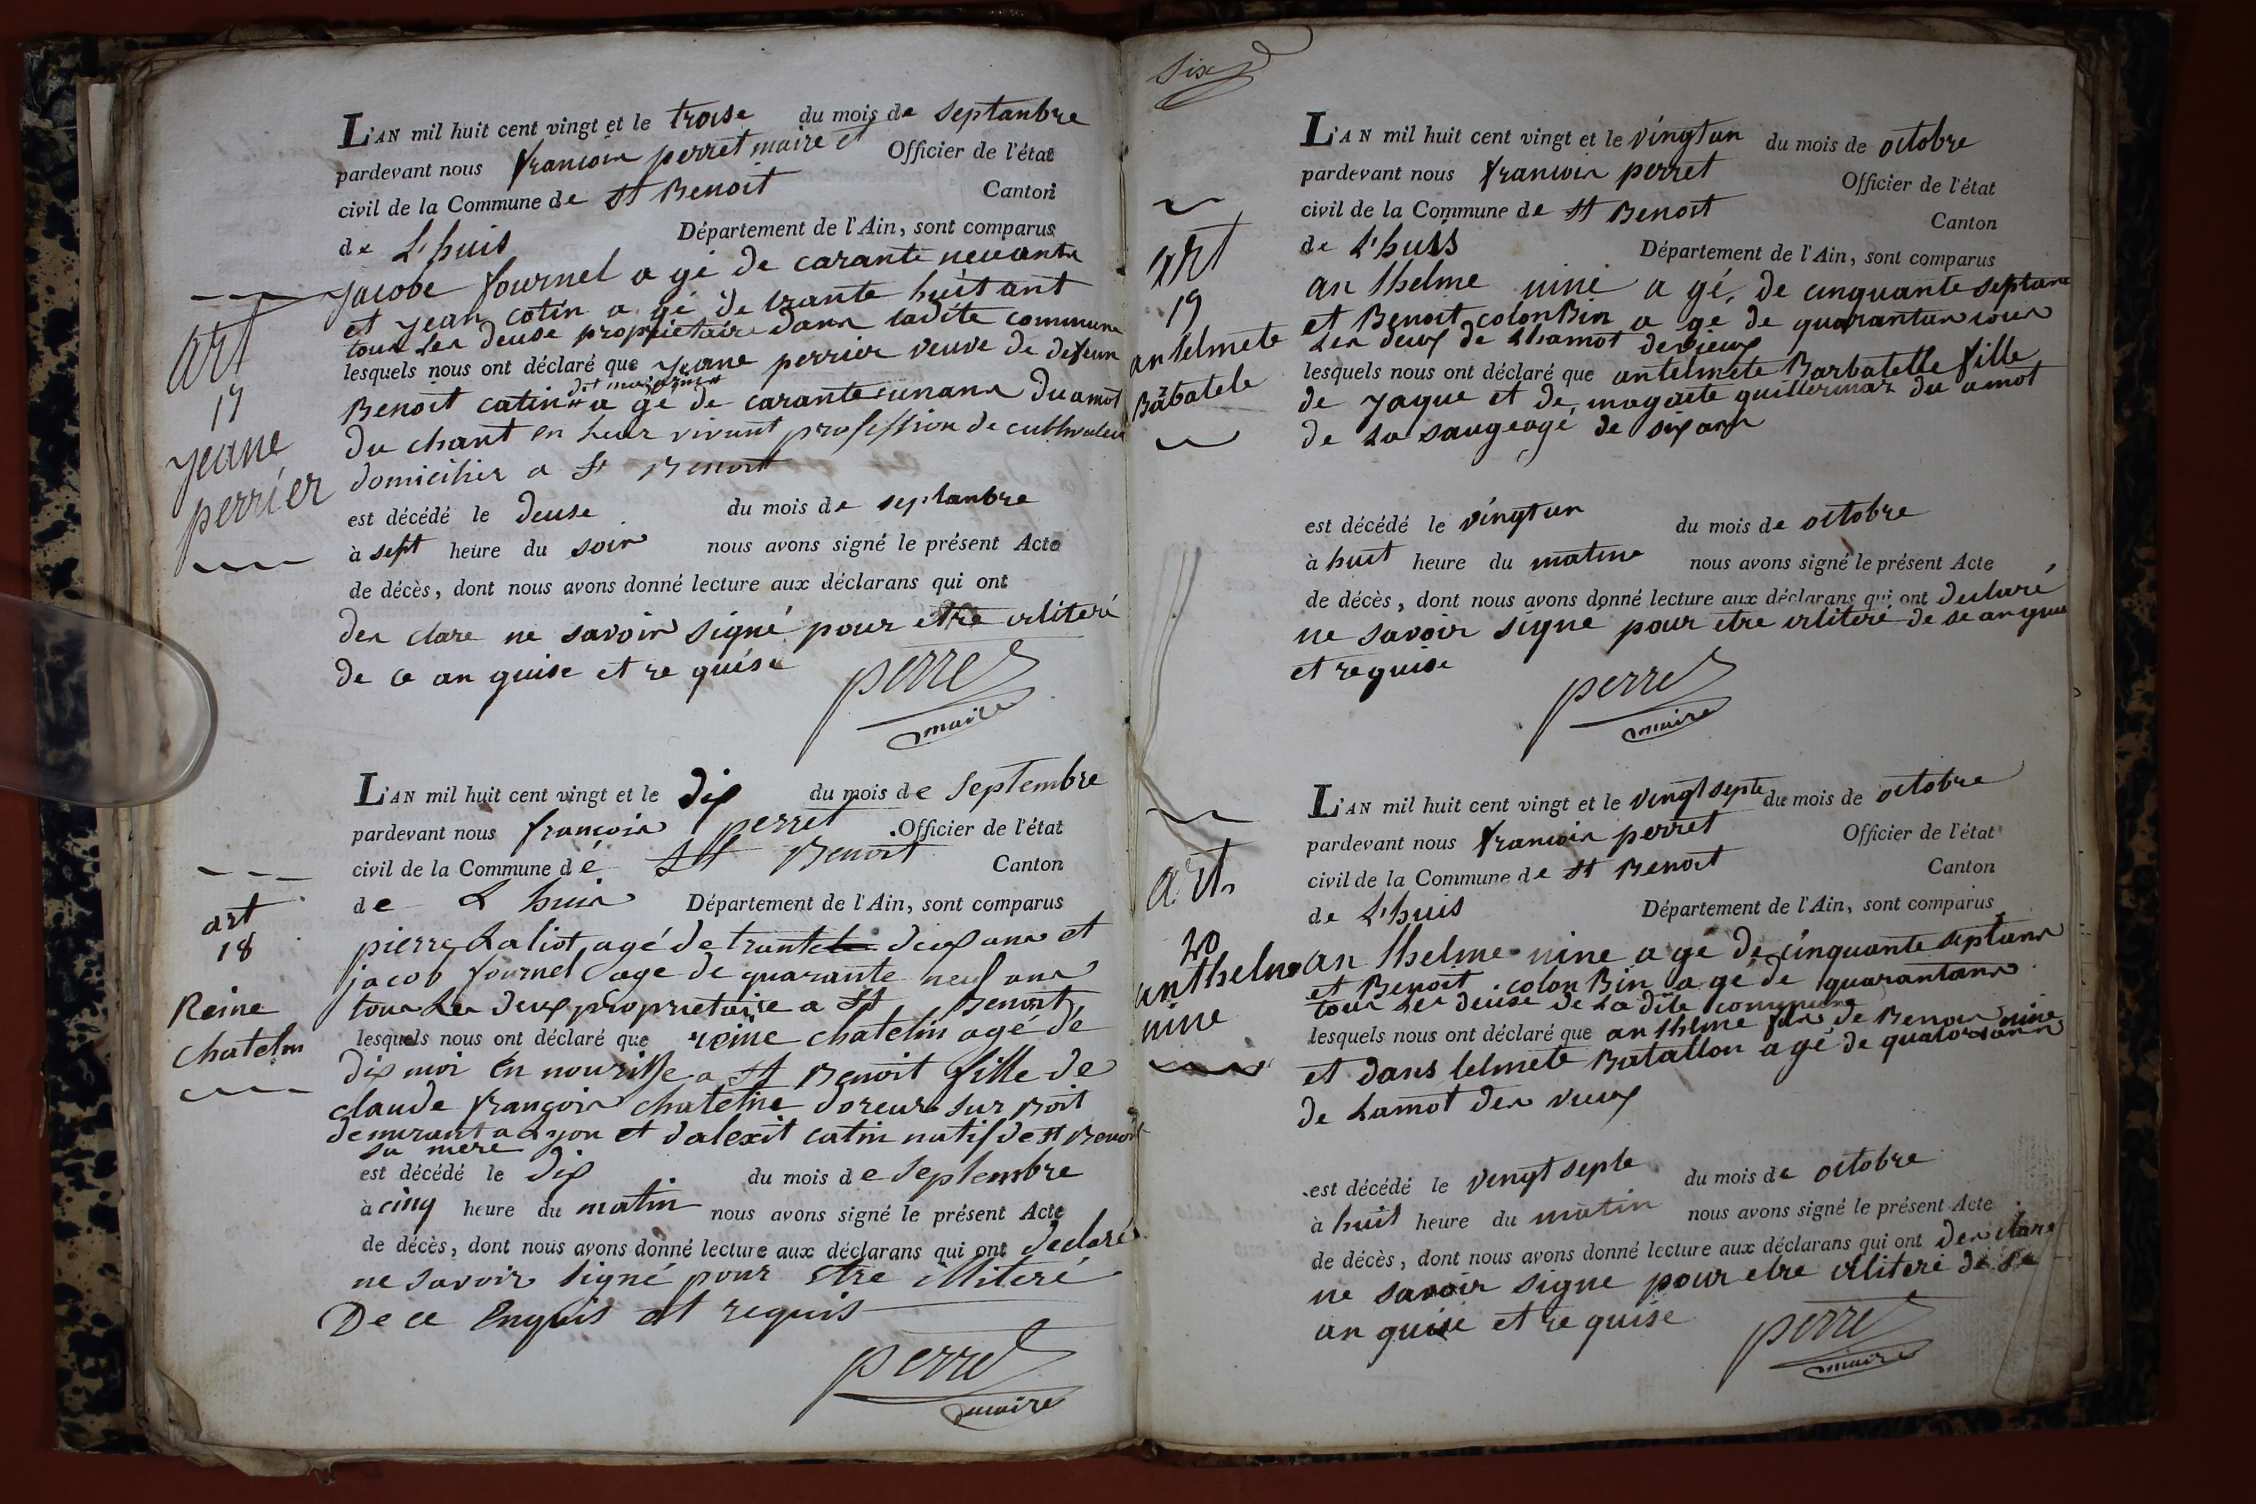 L'AN mil huit cent vingt et le troise du mois de septanbre
pardevant nous francoin perret maire et Officier de l'état
civil de la Commune de St Benoit Canton
de L'huis Département de l'Ain, sont comparus
jacobe fournel a gé de carante neuvante
et jean cotin a gé de trante huit ant
tous Les deuse proprietaire dans ladite commune
lesquels nous ont déclaré que jeane perrier veuve de defeun
Benoit catin a gé de carante unans du amot
du chant en leur vivant profission de culthivateur
domicilier a St Benoit
est décédé le deuse du mois de septanbre
à sept heure du soir nous avons signé le présent Acte
de décès, dont nous avons donné lecture aux déclarans qui ont
des clare ne savoir signé pour etre ilitéré
de ce an quise et re quise
perret
maire
art
17
jeane
perrier
L'AN mil huit cent vingt et le dix du mois de septembre
pardevant nous francois perret Officier de l'état
civil de la Commune dé St Benoit Canton
de L huis Département de l'Ain, sont comparus
pierre Laliot agé de trante deux ans et
jacob fournel age de quarante neuf ans
tous Les deux proprietaire a St Benoit
lesquels nous ont déclaré que reine chatelin agé de
dix moi en nourisse a St Benoit fille de
claude françois chateline doreur sur Boit
demurant a Lyon et dalexit catin natif de St Benoit
sa mere
est décédé le dix du mois de septembre
à cinq heure du matin nous avons signé le présent Acte
de décès, dont nous avons donné lecture aux déclarans qui ont declaré
ne savoir signé pour etre illiteré
De ce Enquis et requis
perret
maire
art
18
Reine
chatelin
Six
L'AN mil huit cent vingt et le vingt un du mois de octobre
pardevant nous francois perret Officier de l'état
civil de la Commune de St Benoit Canton
de L'huis Département de l'Ain, sont comparus
an thelme nine a gé de cinquante septans
et Benoit colonBin a gé de quarantans tous
Les deux de Lhamot des vieux
lesquels nous ont déclaré que antelmete Barbatelle fille
de jaque et de magaite guillermaz du amot
de La saugeagé de sixans
est décédé le vingt un du mois de octobre
à huit heure du matine nous avons signé le présent Acte
de décès, dont nous avons donné lecture aux déclarans qui ont declaré
ne savoir signé pour etre iliteré de se anquis
et requise
perret
maire
art
19
antelmete
Babatele
L'AN mil huit cent vingt et le vingt septe du mois de octobre
pardevant nous francois perret Officier de l'état
civil de la Commune de St Benoit Canton
de L'huis Département de l'Ain, sont comparus
an thelme nine a gé de cinquante septans
et Benoit colonBin a gé de quarantans
tous Les deuse de La dite commune
lesquels nous ont déclaré que an thelme fis de Benoi nine
et dans telmete Batallon a gé de quatorsans
de Lamot des vieux
est décédé le vingt septe du mois de octobre
à huit heure du matin nous avons signé le présent Acte
de décès, dont nous avons donné lecture aux déclarans qui ont des clare
ne savoir signe pour etre iliteré de se
an quise et re quise
perret
maire
art
20
anthelme
nine